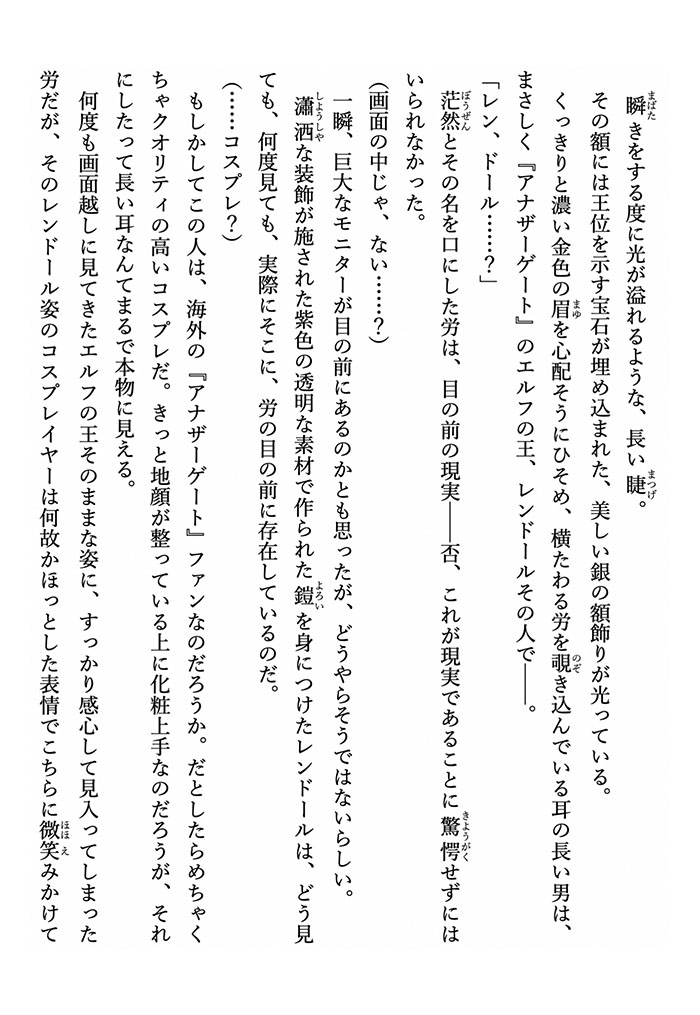 瞬きをする度に光が溢れるような、長い睫。
その額には王位を示す宝石が埋め込まれた、美しい銀の額飾りが光っている。
くっきりと濃い金色の眉を心配そうにひそめ、横たわる労を覗き込んでいる耳の長い男は、
まさしく『アナザーゲート』のエルフの王、レンドールその人で――。
「レン、ドール……？」
茫然とその名を口にした労は、目の前の現実――否、これが現実であることに驚愕せずには
いられなかった。
(画面の中じゃ、ない……？)
一瞬、巨大なモニターが目の前にあるのかとも思ったが、どうやらそうではないらしい。
瀟洒な装飾が施された紫色の透明な素材で作られた鎧を身につけたレンドールは、どう見
ても、何度見ても、実際にそこに、労の目の前に存在しているのだ。
(……コスプレ？)
もしかしてこの人は、海外の『アナザーゲート』ファンなのだろうか。だとしたらめちゃく
ちゃクオリティの高いコスプレだ。きっと地顔が整っている上に化粧上手なのだろうが、それ
にしたって長い耳なんてまるで本物に見える。
何度も画面越しに見てきたエルフの王そのままな姿に、すっかり感心して見入ってしまった
労だが、そのレンドール姿のコスプレイヤーは何故かほっとした表情でこちらに微笑みかけて